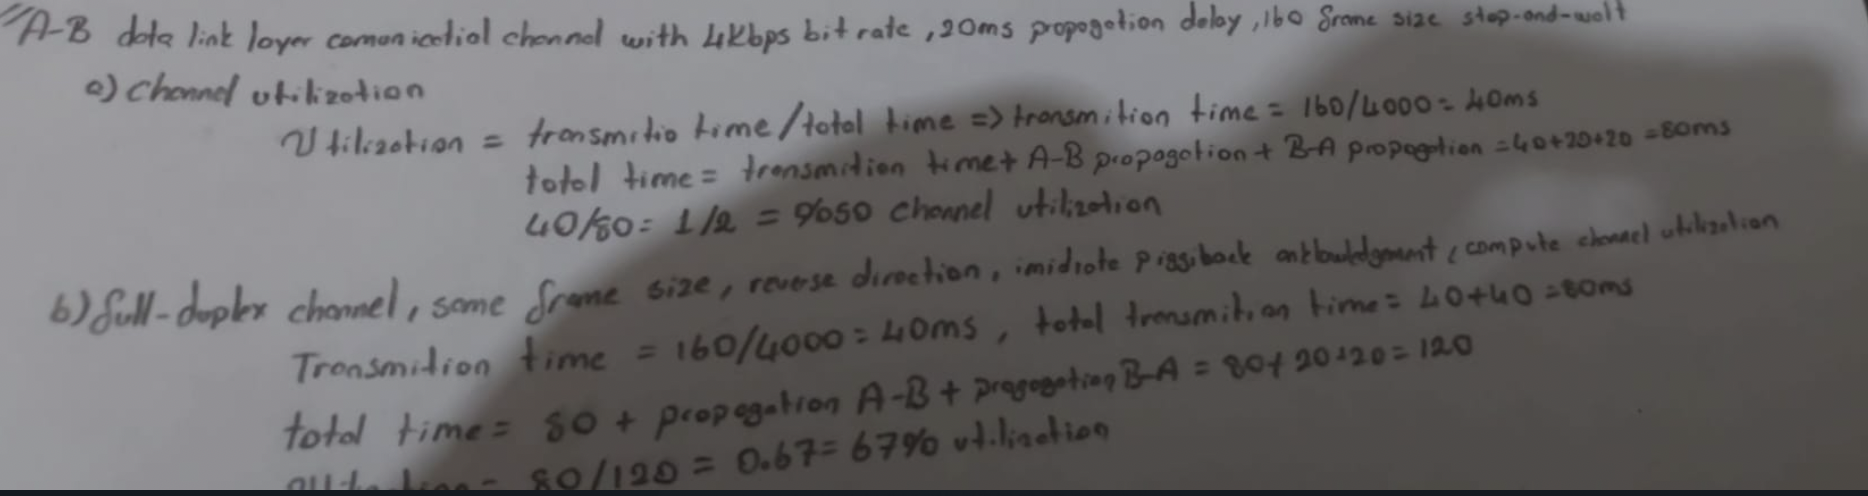 A-B data link layer comonicatiol channel with 4kbps bit rate, 20ms propogation delay, 160 frame size stop-and-wait
a) Channel utilization
Utilization = transmitio time/total time => transmition time = 160/4000 = 40ms
total time = transmition time + A-B propagation + B-A propagation = 40+20+20 = 80ms
40/80 = 1/2 = %50 channel utilization
b) full-duplex channel, same frame size, reverse direction, imidiate piggiback, compute channel utilization
Transmition time = 160/4000 = 40ms, total transmition time = 40+40 = 80ms
total time = 80 + propagation A-B + propagation B-A = 80+20+20 = 120
80/120 = 0.67 = 67% utilization